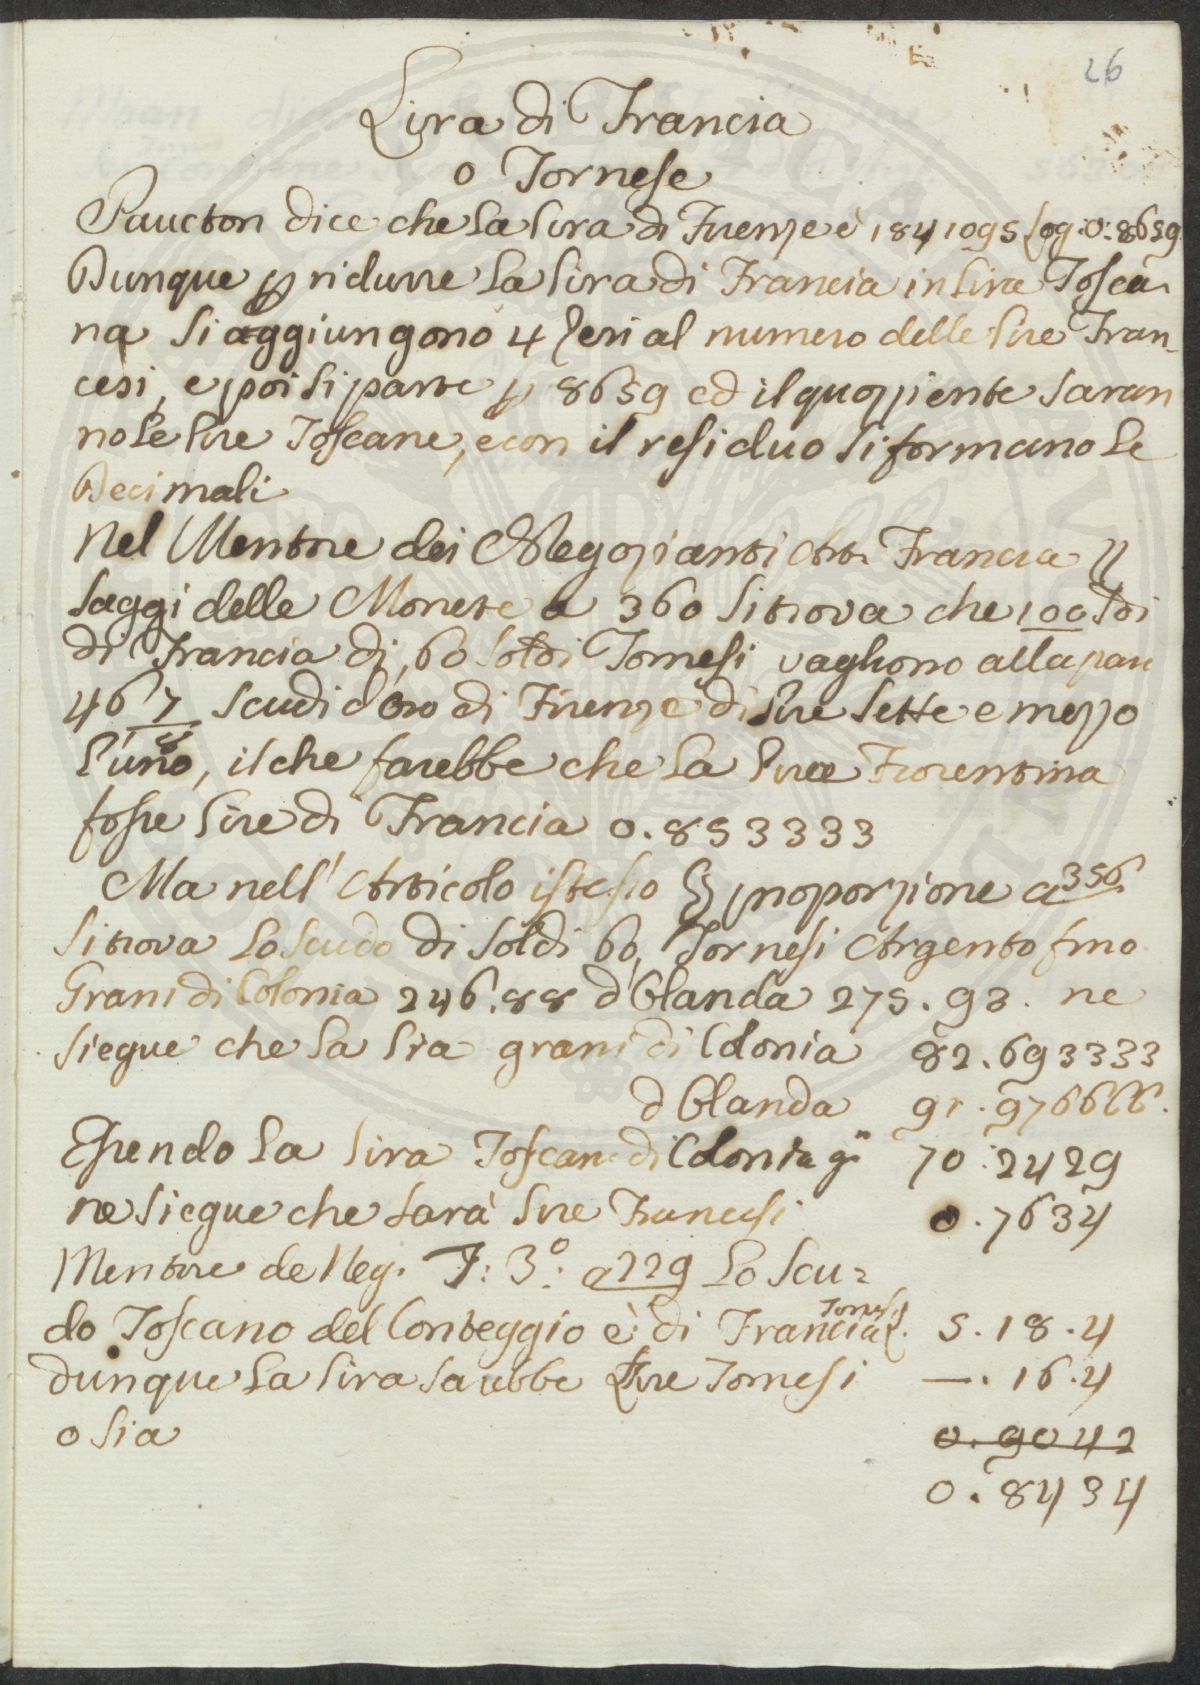 26
Lira di Francia
o Tornese
Paucton dice che la lira di Firenze è 1841095 log. 0.8659
Dunque p ridurre la lira di Francia in lire Tosca-
na si aggiungono 4 Zeri al numero delle lire Fran-
cesi, e poi si parte p 8659 ed il quoziente saran
no le lire Toscane, e con il residuo si formano le
Decimali
Nel Mentore dei Negozianti Art. Francia
Saggi delle Monete a 360 si trova che 100 sdi
di Francia di 60 soldi Tornesi vagliono alla pari
46 7/8 scudi d'oro di Firenze di lire sette e mezzo
l'uno, il che farebbe che la lira Fiorentina
fosse lire di Francia 0.853333
Ma nell'Articolo istesso proporzione a 356
si trova lo scudo di soldi 60 Tornesi Argento fino
Grani di Colonia 246.88 d'Olanda 275.93. ne
siegue che la lira grani di Colonia 82.693333
d'Olanda 91.976666.
Essendo la lira Toscana di Colonia g. 70.2429
ne siegue che sarà lire Francesi 0.7634
Mentore de Neg. T: 3º: a 229 lo scu-
do Toscano del Conteggio è di Francia Tornesi L. 5.18.4
dunque la lira sarebbe Lire Tornesi —.16.4
o sia 0.9042
0.8434